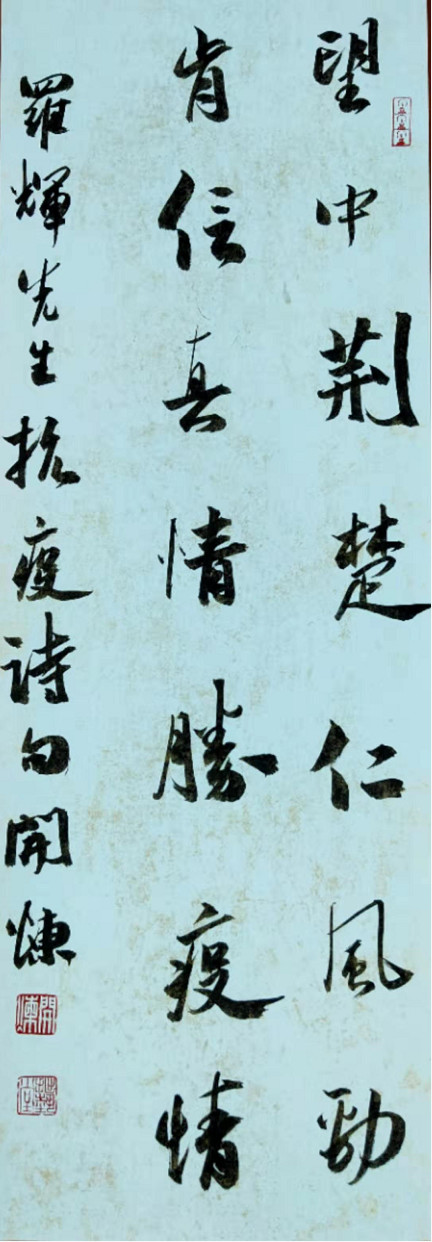 望中荆楚仁风劲
肯信真情勝疫情
羅輝先生抗疫詩句開煉